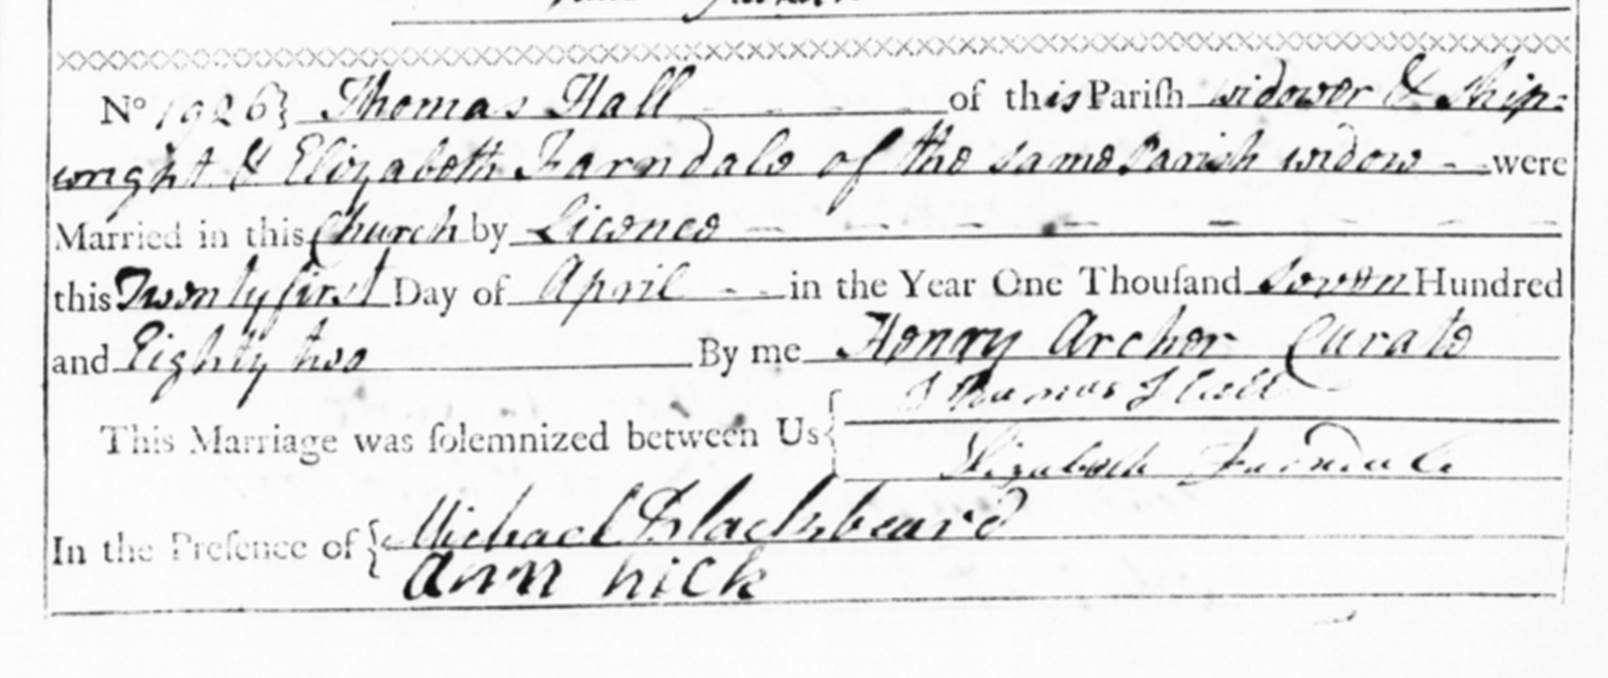 No 1926} Thomas Hall - - - - of this Pariſh widower & Ship-
wright & Elizabeth Farndale of the same Parish widow - - were
Married in this Church by Licence - - - - - - - -
this Twenty first Day of April - - in the Year One Thouſand Seven Hundred
and Eighty two By me Henry Archer Curate
Thomas Hall
This Marriage was ſolemnized between Us {
Elizabeth Farndale
In the Preſence of { Michael Blackbeard
Ann hick